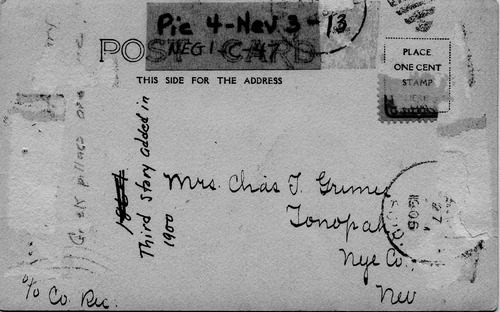 Pic 4-Nev 3-13
POST CARD
NEG 1-C-47
THIS SIDE FOR THE ADDRESS
PLACE
ONE CENT
STAMP
HERE
Third story added in
1900
Mrs. Chas T. Grimes
Tonopah
Nye Co.
Nev
c/o Co. Rec.
27
1906